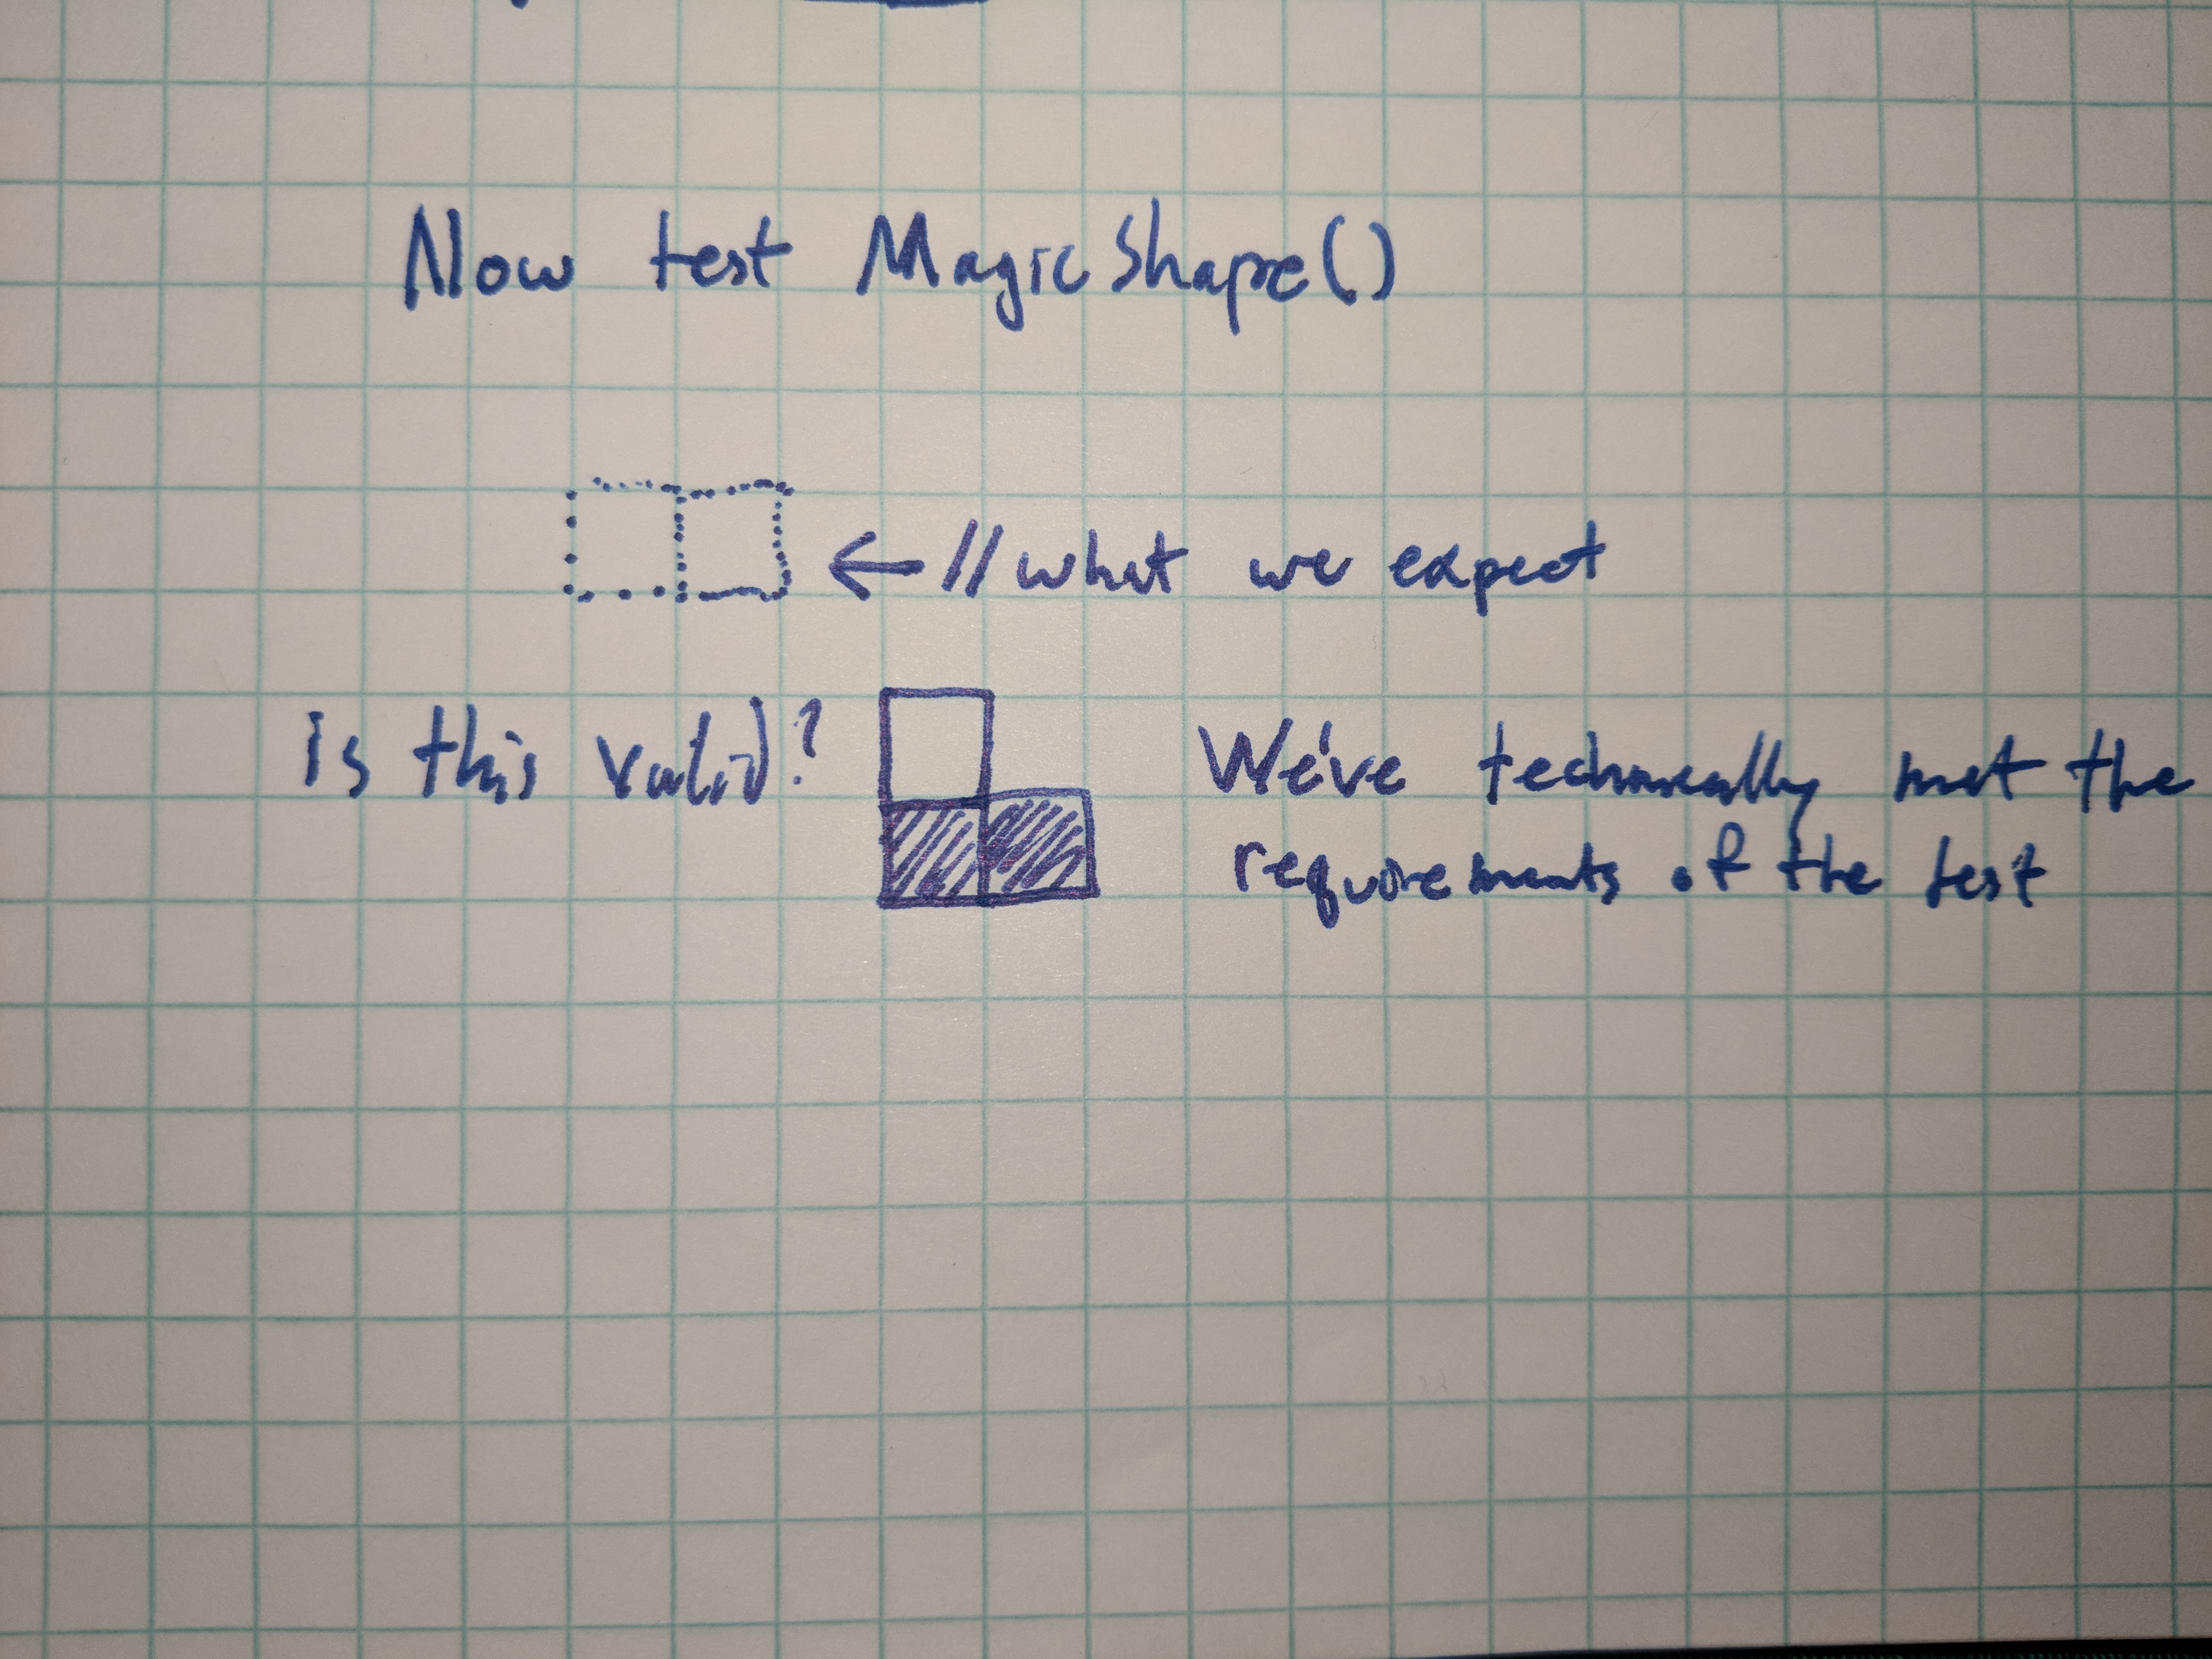 Now test MagicShape()
← // what we expect
is this valid?
We've technically met the
requirements of the test